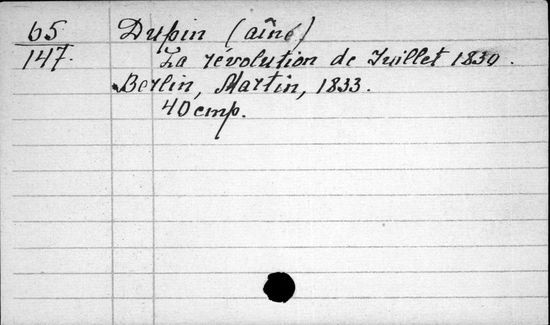 65 Dupin (aîné)
147. La révolution de Juillet 1830.
Berlin, Martin, 1833.
40 cmp.